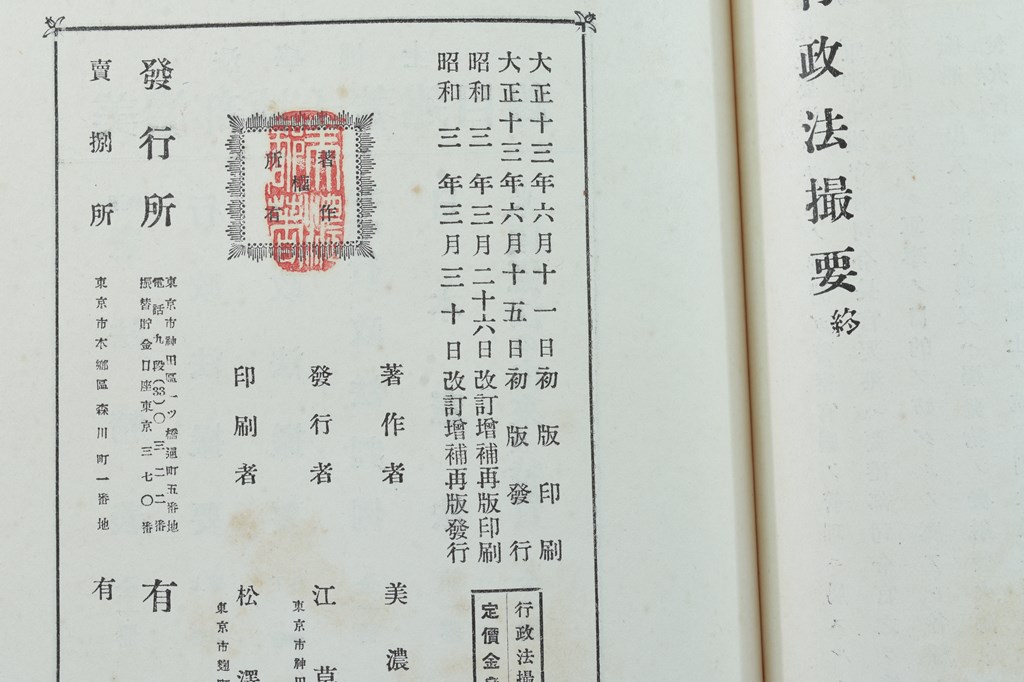 行政法撮要終
大正十三年六月十一日初版印刷
大正十三年六月十五日初版發行
昭和三年三月二十六日改訂增補再版印刷
昭和三年三月三十日改訂增補再版發行
行政法撮
定價金
著作者 美濃
發行者 江草
東京市神田
印刷者 松澤
東京市麴町
著作權所有
發行所 有
東京市神田區一ツ橋通町五番地
電話九段(33)〇三二二番
振替貯金口座東京三七〇番
賣捌所 有
東京市本鄉區森川町一番地